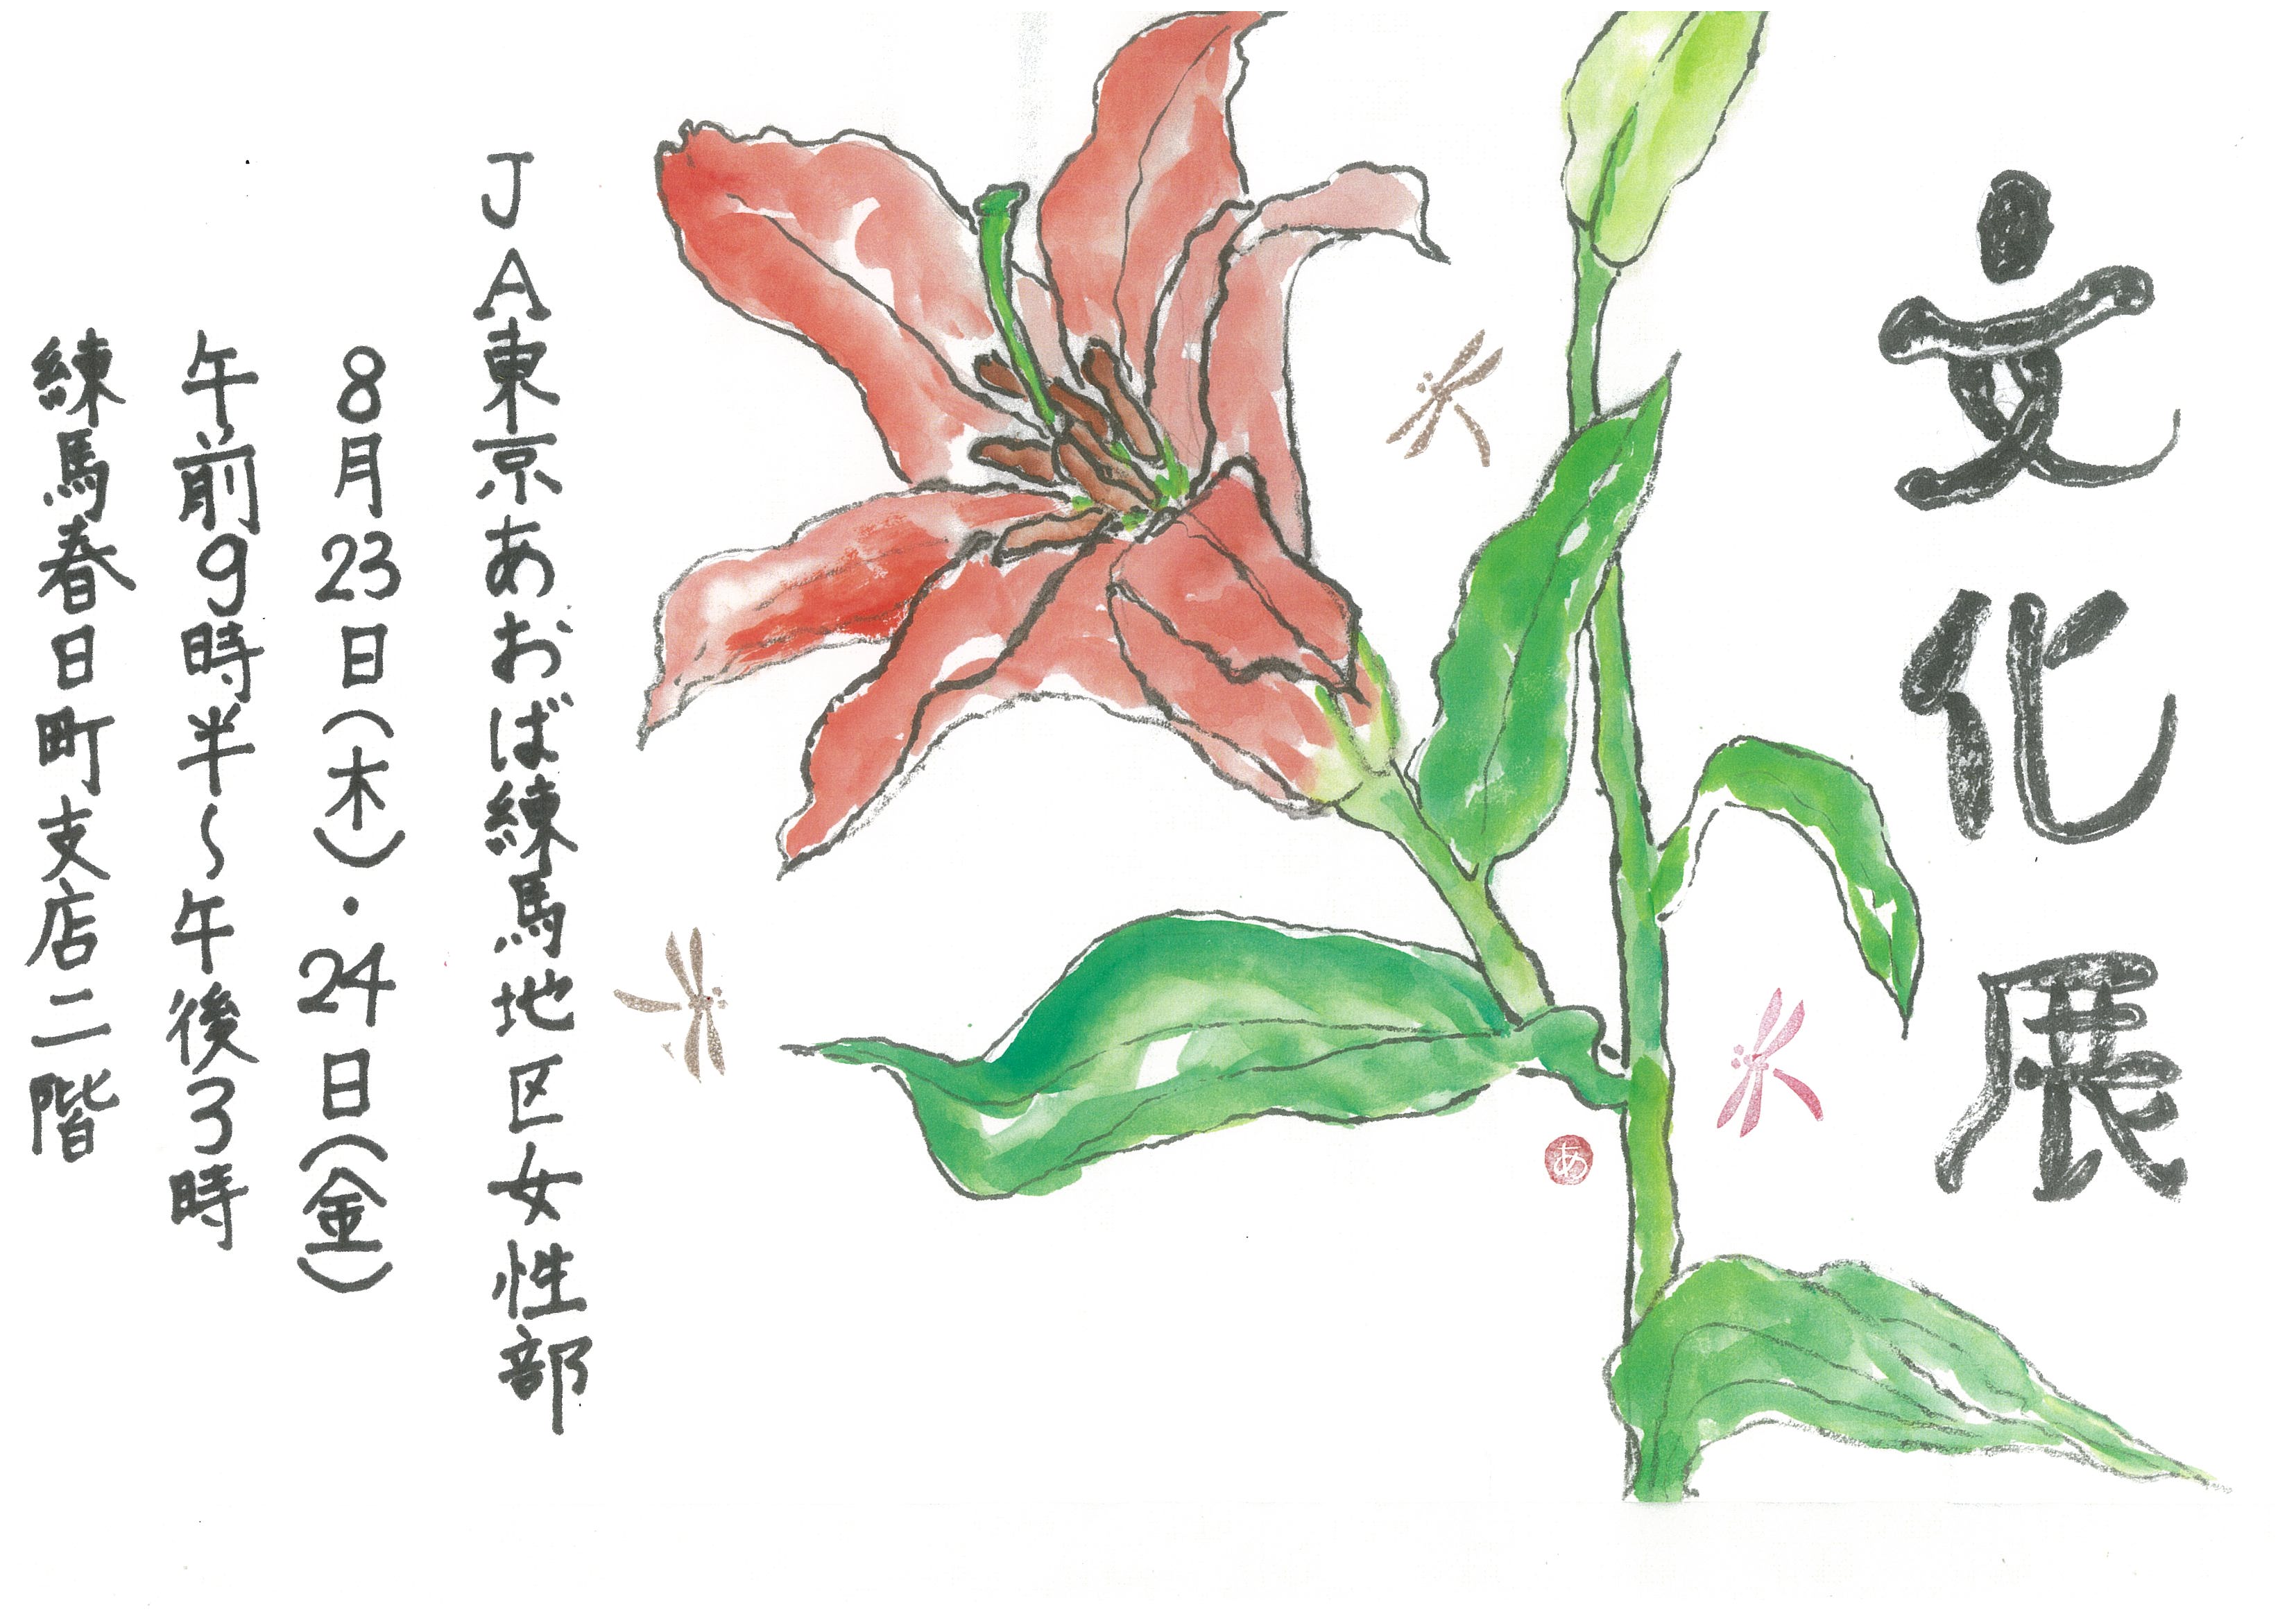 文化展
あ
JA東京あおば練馬地区女性部
8月23日(木)・24日(金)
午前9時半~午後3時
練馬春日町支店二階